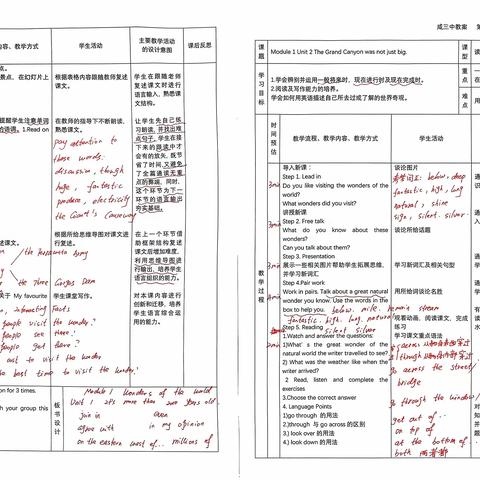 容、教学方式
学生活动
主要教学活动
的设计意图
课后反思
景点、在幻灯片上
根据表格内容跟随教师复述
课文。
学生在跟随老师
复述课文时进行
语言输入，熟悉课
文结构。
提醒学生注意单词
1.Read on
在教师的指导下不断朗读、
熟悉课文。
pay attention to
these words:
discussion, though
huge, fantastic
produce, electricity
the Giant's Causeway
让学生先自己练
习朗读，并找出难
点句子，学生在接
下来的跟读中才
会有的放矢，既节
省了时间，又避免
了全篇通读无重
点的弊端，同时，
这个环节为下一
环节的语言输出
夯实基础。
述课文。
根据所给思维导图对课文进
行复述。
the Terracotta Army
the Three Gorges Dam
在上一个环节借
助框架结构复述
课文后增加难度，
利用思维导图进
行输出，培养学生
语言组织的能力。
关于 My favourite
学生课堂写作。
interesting facts
people visit the wonder?
people see there?
people get there?
cost to visit the wonder
best time to visit the wonder!
对本课内容进行
创新和迁移，培养
学生语言综合运
用的能力。
ion for 3 times.
h your group this
板
书
设
计
Module 1 Wonders of the world
Unit 1 It's more than 2000 years old.
join in
agree with
in my opinion
on the eastern coast of... millions of
咸三中教案 第
课
题
Module 1 Unit 2 The Grand Canyon was not just big.
课
型
读
学
习
目
标
1.学会辨别并运用一般将来时，现在进行时及现在完成时。
2.阅读及写作能力的培养。
学会如何用英语描述自己所去过或了解的世界奇观。
重
点
难
点
在
一
用
教
学
过
程
时
间
预
估
教学流程、教学内容、教学方式
学生活动
导入新课：
Step 1. Lead in
Do you like visiting the wonders of the
world?
What wonders did you visit?
讲授新课
Step 2. Free talk
What do you know about these
wonders?
Can you talk about them?
Step 3. Presentation
展示一些相关图片帮助学生拓展思维，
并学习新词汇
Step 4.Pair work
Work in pairs. Talk about a great natural
wonder you know. Use the words in the
box to help you. below. mile. remain stream
fantastic. high. lung. natural.
silent silver
Step 5. Reading
1.Watch and answer the questions:
1) What's the great wonder of the
natural world the writer travelled to see?
2) What was the weather like when the
writer arrived?
2 Read, listen and complete the
exercises
3.Choose the correct answer
4. Language Points
1)go through 的用法
2)through 与 go across 的区别
3.) look over 的用法
4) look down 的用法
谈论图片
below, deep
fantastic, high, lung
natural, shine
sign, silent. silver.
谈论所给话题
学习新词汇及相关句型
用所给词谈论名胜
观看动画，阅读课文，完成
练习
学习课文重点语法
go across the street/
bridge
go through the window/
get out of...
on top of
at the bottom of
both 两者都